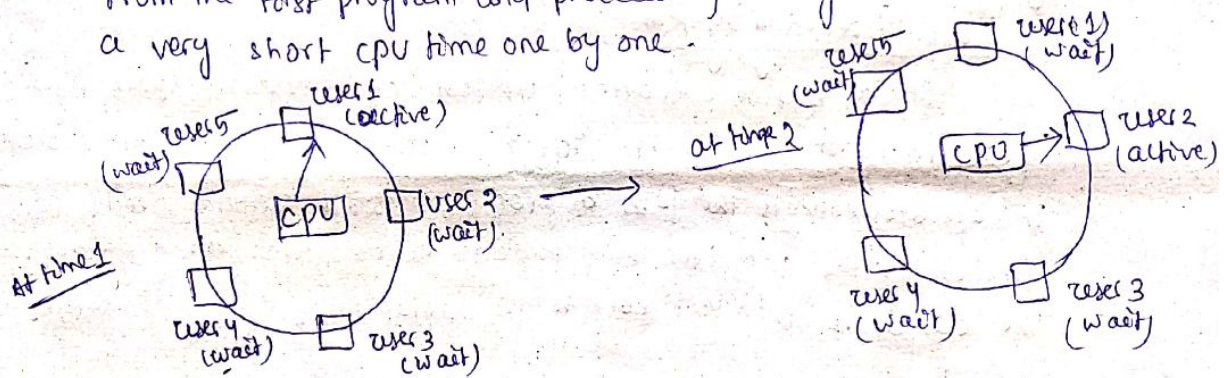 a very short cpu time one by one.
At time 1
user 1
(active)
user 5
(wait)
CPU
user 2
(wait)
user 4
(wait)
user 3
(wait)
at time 2
user 1)
(wait)
user 5
(wait)
CPU
user 2
(active)
user 4
(wait)
user 3
(wait)